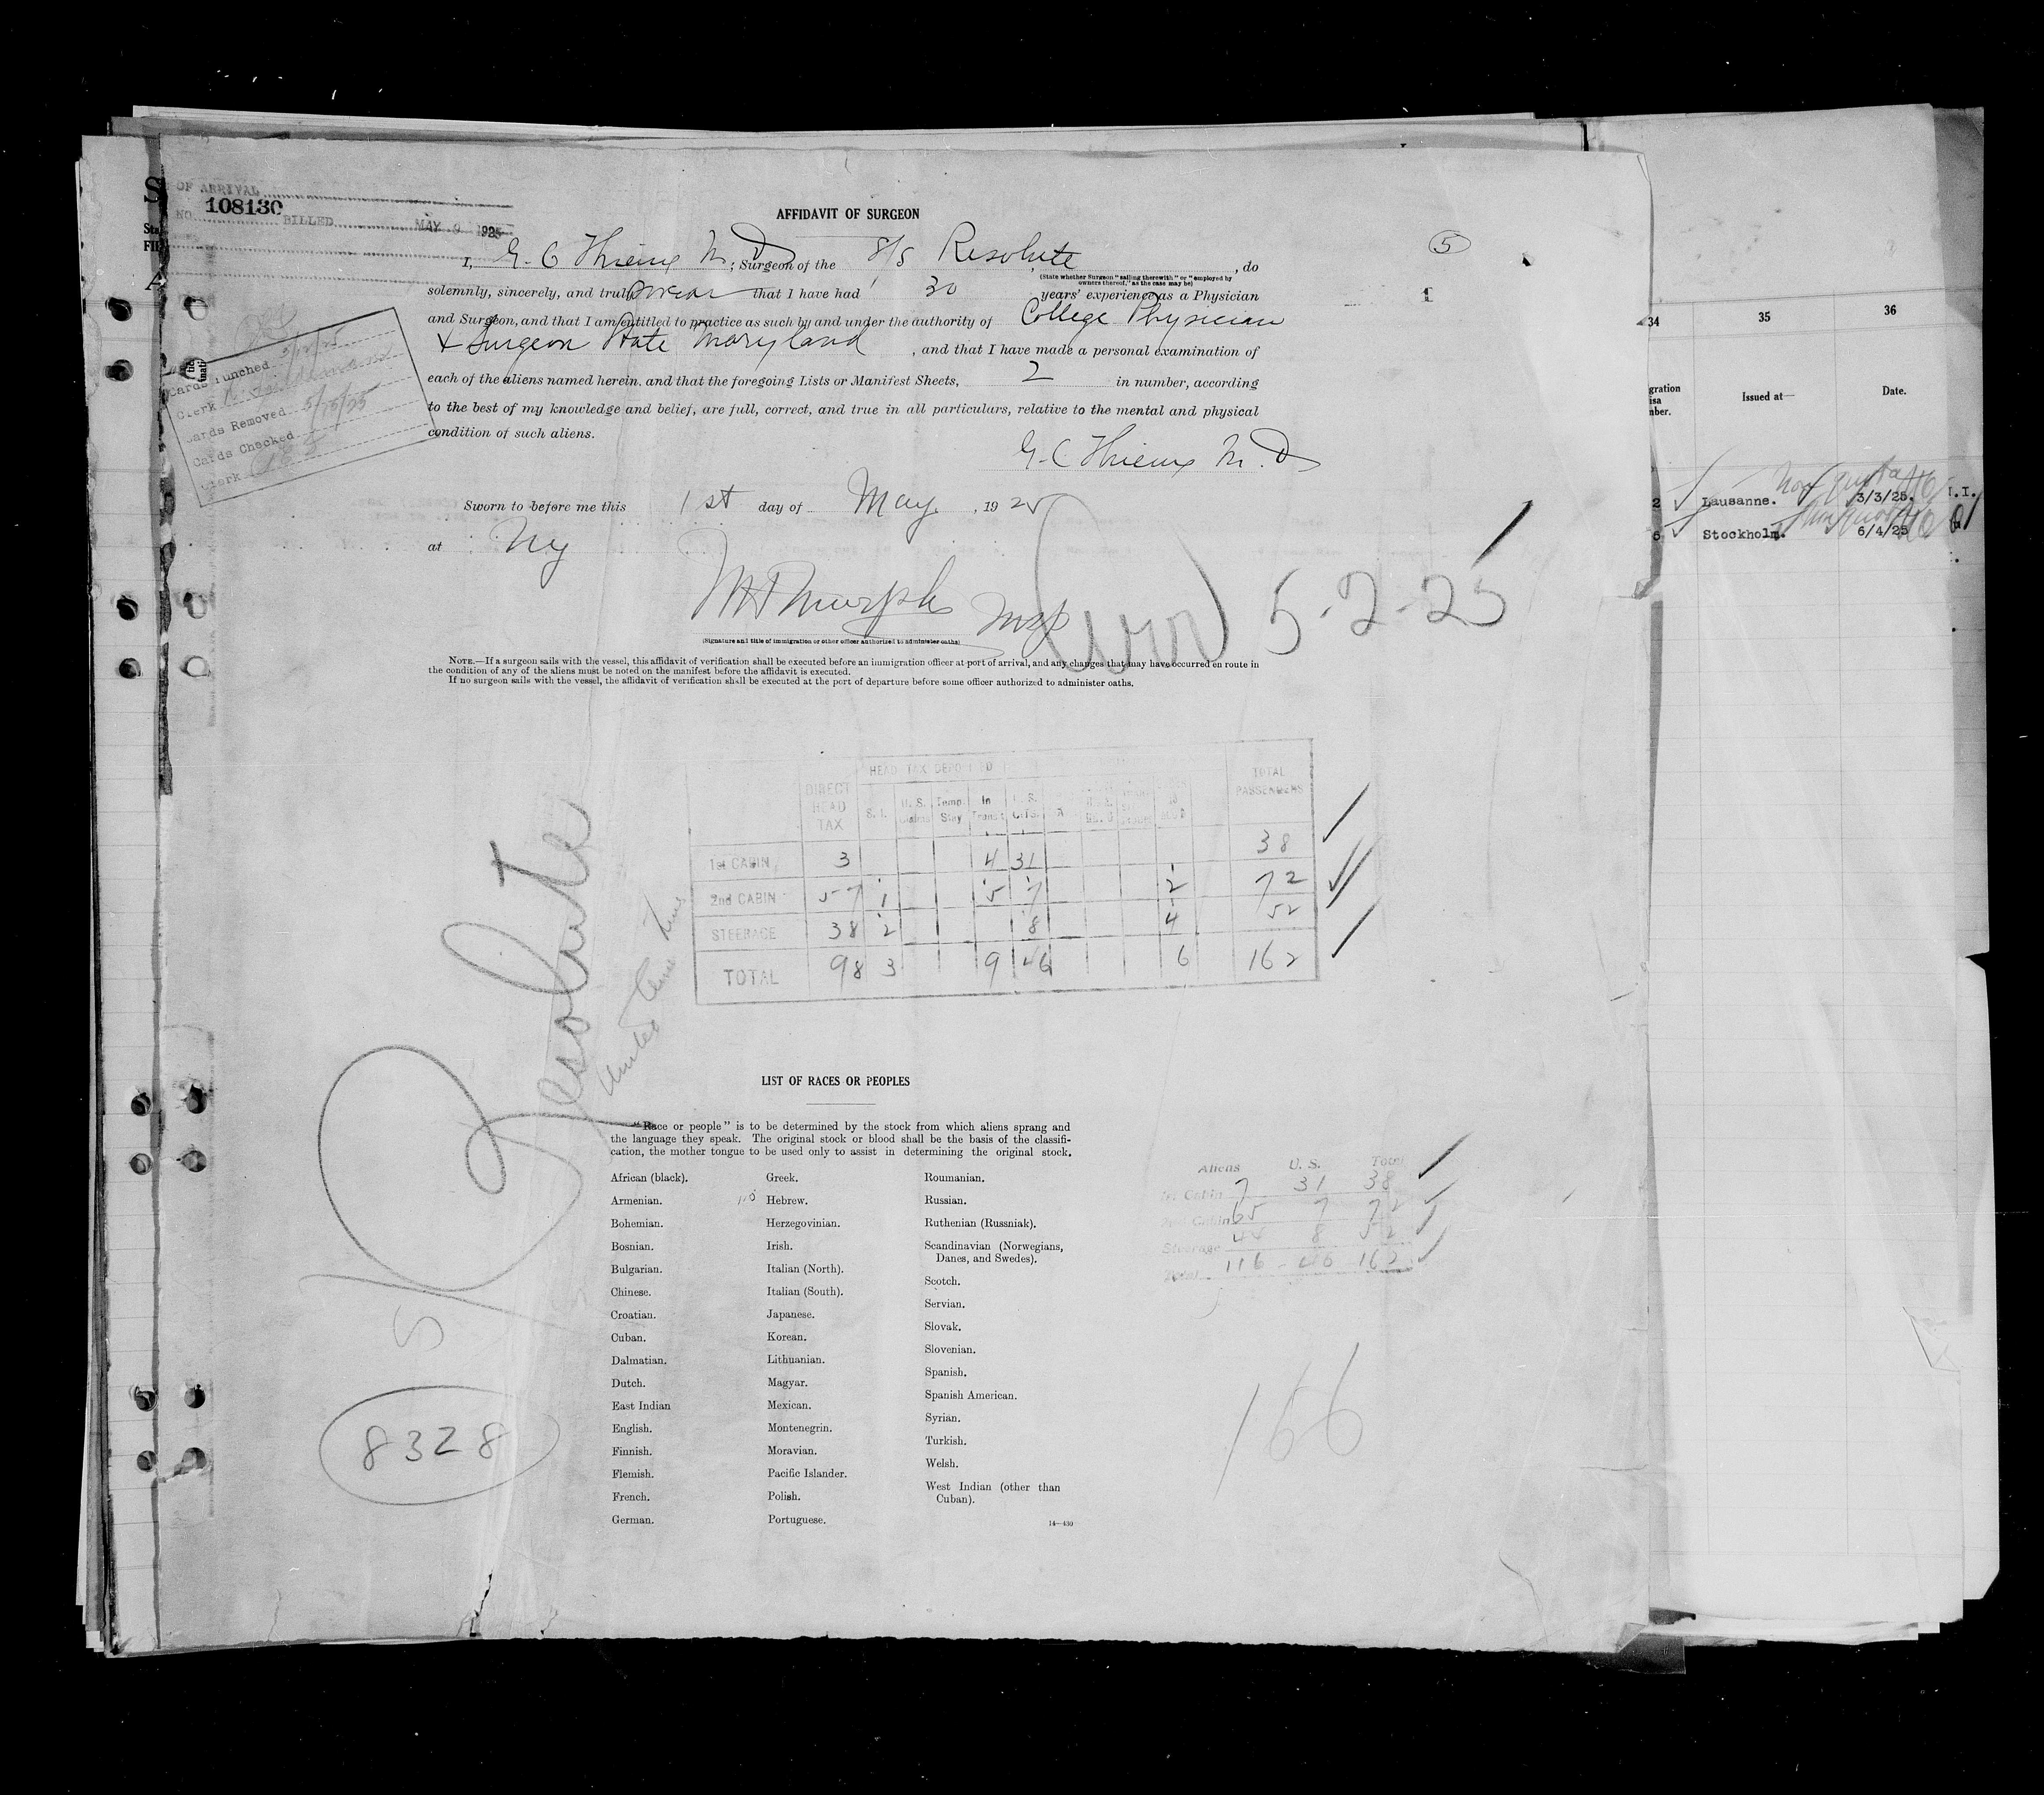 OF ARRIVAL
108130
NO. BILLED MAY 9 1925
AFFIDAVIT OF SURGEON
5
I, G. C. M. D ; Surgeon of the S/S Resolute , do
(State whether Surgeon "sailing therewith" or "employed by
owners thereof," as the case may be)
solemnly, sincerely, and truly swear that I have had 30 years' experience as a Physician
1
and Surgeon, and that I am entitled to practice as such by and under the authority of College Physician
& Surgeon State Maryland , and that I have made a personal examination of
each of the aliens named herein, and that the foregoing Lists or Manifest Sheets, 2 in number, according
to the best of my knowledge and belief, are full, correct, and true in all particulars, relative to the mental and physical
condition of such aliens.
G. C. M. D
Cards Punched 5/12/25
Clerk
Cards Removed 5/15/25
Cards Checked
Clerk
Sworn to before me this 1st day of May , 1925
at NY
Murphy Insp
5-2-25
(Signature and title of immigration or other officer authorized to administer oaths)
NOTE.—If a surgeon sails with the vessel, this affidavit of verification shall be executed before an immigration officer at port of arrival, and any changes that may have occurred en route in
the condition of any of the aliens must be noted on the manifest before the affidavit is executed.
If no surgeon sails with the vessel, the affidavit of verification shall be executed at the port of departure before some officer authorized to administer oaths.
HEAD TAX DEPOSITED
DIRECT HEAD TAX S. I. U. S. Claims Temp. Stay In Transit U. S. Citz. TOTAL PASSENGERS
1st CABIN 3 4 31 38
2nd CABIN 57 1 5 7 2 72
STEERAGE 38 2 8 4 52
TOTAL 98 3 9 46 6 162
S/S Resolute
United Amer Lines
8328
LIST OF RACES OR PEOPLES
"Race or people" is to be determined by the stock from which aliens sprang and
the language they speak. The original stock or blood shall be the basis of the classifi-
cation, the mother tongue to be used only to assist in determining the original stock.
African (black).
Armenian.
Bohemian.
Bosnian.
Bulgarian.
Chinese.
Croatian.
Cuban.
Dalmatian.
Dutch.
East Indian
English.
Finnish.
Flemish.
French.
German.
Greek.
Hebrew.
Herzegovinian.
Irish.
Italian (North).
Italian (South).
Japanese.
Korean.
Lithuanian.
Magyar.
Mexican.
Montenegrin.
Moravian.
Pacific Islander.
Polish.
Portuguese.
Roumanian.
Russian.
Ruthenian (Russniak).
Scandinavian (Norwegians,
Danes, and Swedes).
Scotch.
Servian.
Slovak.
Slovenian.
Spanish.
Spanish American.
Syrian.
Turkish.
Welsh.
West Indian (other than
Cuban).
14—430
Aliens U. S. Total
1st Cabin 7 31 38
2nd Cabin 65 7 72
Steerage 44 8 52
Total 116 - 46 162
166
34 35 36
Issued at— Date.
2 Lausanne. 3/3/25. I.I.
5 Stockholm. 6/4/25